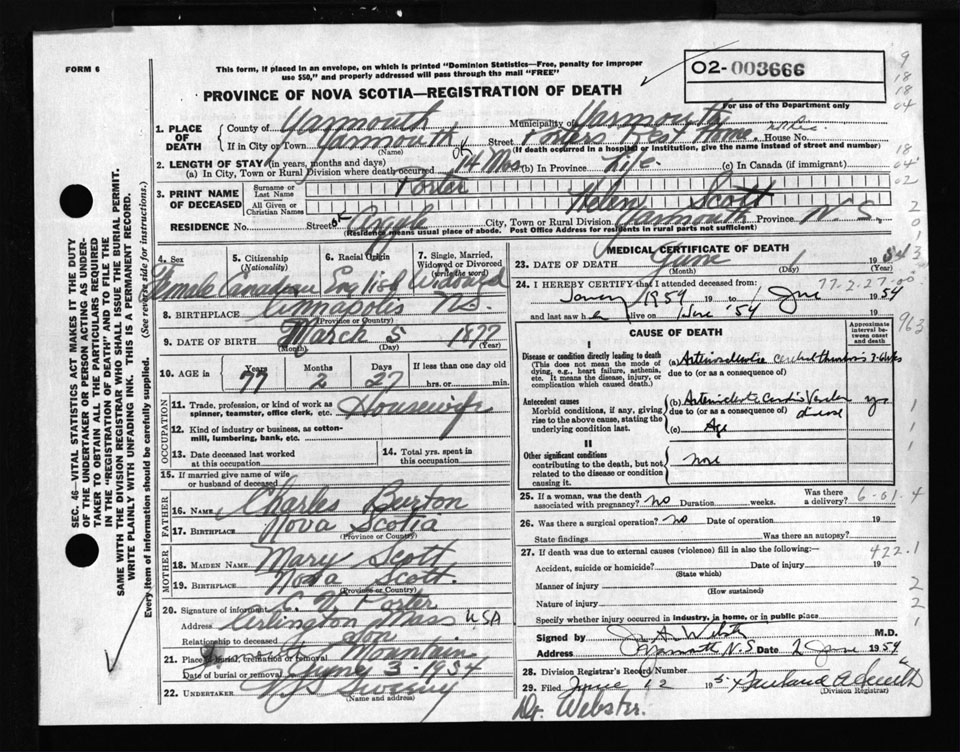 FORM 6
This form, if placed in an envelope, on which is printed "Dominion Statistics—Free, penalty for improper
use $50," and properly addressed will pass through the mail "FREE"
PROVINCE OF NOVA SCOTIA—REGISTRATION OF DEATH
02-003666
For use of the Department only
1. PLACE OF DEATH
County of Yarmouth Municipality of Yarmouth
If in City or Town Yarmouth Street Porters Rest Home House No.
(Name) (If death occurred in a hospital or institution, give the name instead of street and number)
2. LENGTH OF STAY (in years, months and days)
(a) In City, Town or Rural Division where death occurred 14 Mos (b) In Province Life. (c) In Canada (if immigrant)
3. PRINT NAME OF DECEASED
Surname or Last Name Porter
All Given or Christian Names Helen Scott
RESIDENCE No. Street Argyle St City, Town or Rural Division Yarmouth Province N.S.
(Residence means usual place of abode. Post Office Address for residents in rural parts not sufficient)
4. Sex 5. Citizenship (Nationality) 6. Racial Origin 7. Single, Married, Widowed or Divorced (write the word)
Female Canadian English Widowed
8. BIRTHPLACE Annapolis N.S.
(Province or Country)
9. DATE OF BIRTH March 5 1877
(Month) (Day) (Year)
10. AGE in Years Months Days If less than one day old
77 2 27 hrs. or min.
OCCUPATION
11. Trade, profession, or kind of work as spinner, teamster, office clerk, etc. Housewife
12. Kind of industry or business, as cotton-mill, lumbering, bank, etc.
13. Date deceased last worked at this occupation 14. Total yrs. spent in this occupation
15. If married give name of wife or husband of deceased
FATHER
16. NAME Charles Burton
17. BIRTHPLACE Nova Scotia
(Province or Country)
MOTHER
18. MAIDEN NAME Mary Scott
19. BIRTHPLACE Nova Scott.
(Province or Country)
20. Signature of informant Porter
Address Arlington Mass USA
Relationship to deceased son
21. Place of burial, cremation or removal Mountain
Date of burial or removal June 3 - 1954
22. UNDERTAKER Sweeny
(Name and address)
MEDICAL CERTIFICATE OF DEATH
23. DATE OF DEATH June 1 1954
(Month) (Day) (Year)
24. I HEREBY CERTIFY that I attended deceased from: 77-2-27-00
1954 19 to 1 June 1954
and last saw her alive on 1 June '54 19
CAUSE OF DEATH
Approximate interval between onset and death
I
Disease or condition directly leading to death
(This does not mean the mode of dying, e.g., heart failure, asthenia, etc. It means the disease, injury, or complication which caused death.)
(a)
due to (or as a consequence of)
Antecedent causes
Morbid conditions, if any, giving rise to the above cause, stating the underlying condition last.
(b)
due to (or as a consequence of) disease
(c) Age
II
Other significant conditions
contributing to the death, but not related to the disease or condition causing it.
none
25. If a woman, was the death associated with pregnancy? no Duration weeks. Was there a delivery?
26. Was there a surgical operation? no Date of operation 19
State findings Was there an autopsy?
27. If death was due to external causes (violence) fill in also the following:— 422.1
Accident, suicide or homicide? Date of injury 19
(State which)
Manner of injury
(How sustained)
Nature of injury
Specify whether injury occurred in industry, in home, or in public place
Signed by Webster M.D.
Address Yarmouth N.S Date 2 June 1954
28. Division Registrar's Record Number
29. Filed June 12 195
(Division Registrar)
Dr. Webster.
SEC. 46—VITAL STATISTICS ACT MAKES IT THE DUTY
OF THE UNDERTAKER OR PERSON ACTING AS UNDER-
TAKER TO OBTAIN ALL THE PARTICULARS REQUIRED
IN THE "REGISTRATION OF DEATH" AND TO FILE THE
SAME WITH THE DIVISION REGISTRAR WHO SHALL ISSUE THE BURIAL PERMIT.
WRITE PLAINLY WITH UNFADING INK. THIS IS A PERMANENT RECORD.
Every item of information should be carefully supplied. (See reverse side for instructions.)